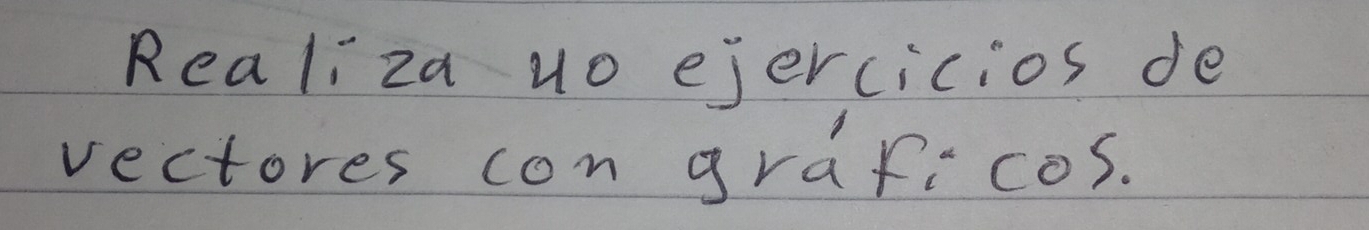 Realiza 40 ejercicios de
vectores con gráficos.